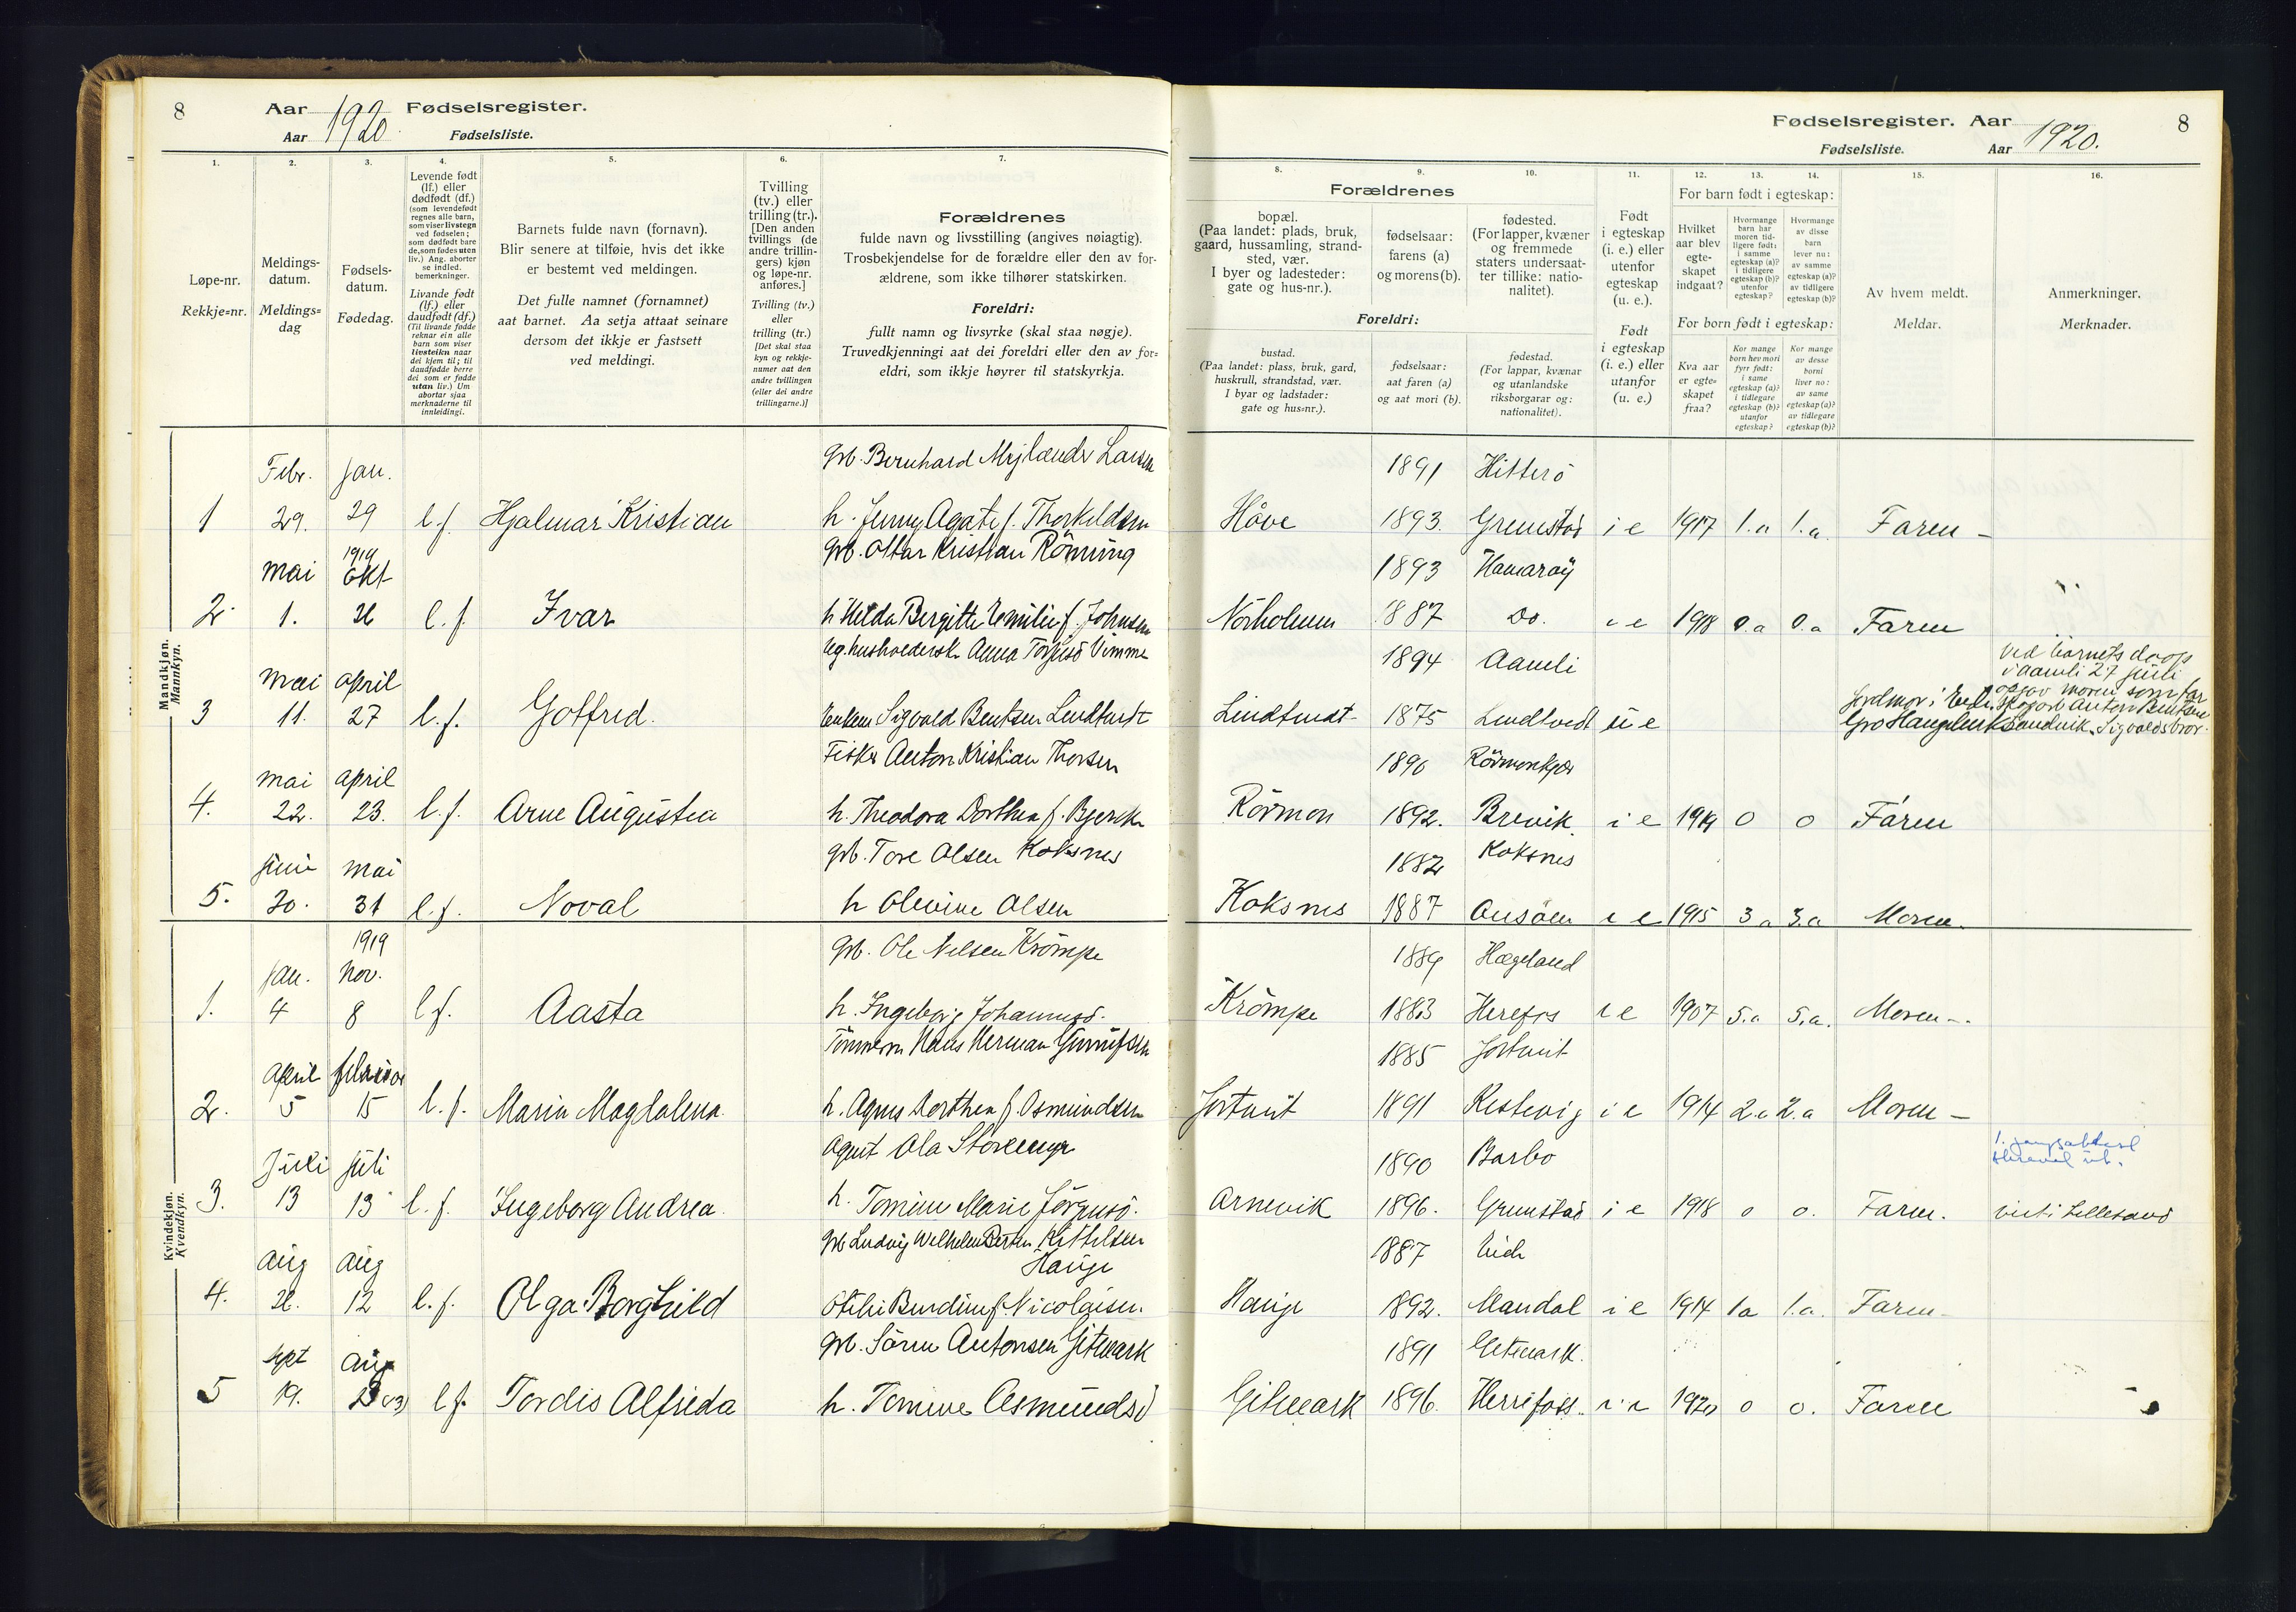 8
Aar 1920 Fødselsregister.
Aar Fødselsliste.
1.
2.
3.
4.
5.
6.
7.
Løpe-nr.
Rekkje=nr.
Meldings-
datum.
Meldings=
dag
Fødsels-
datum.
Fødedag.
Levende født
(lf.) eller
dødfødt (df.)
(som levendefødt
regnes alle barn,
som viser livstegn
ved fødselen;
som dødfødt bare
de, som fødes uten
liv.) Ang. aborter
se indled.
bemerkninger.
Livande født
(lf.) eller
daudfødt (df.)
(Til livande fødde
reknar ein alle
barn som viser
livsteikn naar
dei kjem til; til
daudfødde berre
dei som er fødde
utan liv.) Um
abortar sjaa
merknaderne til
innleidingi.
Barnets fulde navn (fornavn).
Blir senere at tilføie, hvis det ikke
er bestemt ved meldingen.
Det fulle namnet (fornamnet)
aat barnet. Aa setja attaat seinare
dersom det ikkje er fastsett
ved meldingi.
Tvilling
(tv.) eller
trilling (tr.).
[Den anden
tvillings (de
andre trillin-
gers) kjøn
og løpe-nr.
anføres.]
Tvilling (tv.)
eller
trilling (tr.)
[Det skal staa
kyn og rekkje-
numer aat den
andre tvillingen
(eller dei andre
trillingarne.)]
Forældrenes
fulde navn og livsstilling (angives nøiagtig).
Trosbekjendelse for de forældre eller den av for-
ældrene, som ikke tilhører statskirken.
Foreldri:
fullt namn og livsyrke (skal staa nøgje).
Truvedkjenningi aat dei foreldri eller den av for=
eldri, som ikkje høyrer til statskyrkja.
Mandkjøn.
Mannkyn.
Febr. Jan.
grb. Bernhard Larsen
1 29. 29 l.f. Hjalmar Kristian h. Jenny Agate f. Thorkildsen
1919
mai Okt
grb. Ottar Kristian Rönning
2. 1. 26 l.f. Ivar h Helda Bergitte Emilie f. Johnsen
mai april
ug. Anna
3 11. 27 l.f. Gotfred. Enkem Sigvald Bentsen Lindtveit
mai april
Fisker Anton Kristian Thorsen
4. 22. 23. l.f. Arne Augustea h. Theodora Dorthea f. Bjerck
juni mai
grb. Tore Olsen Koksnes
5. 30. 31 l.f. Noval h Olevine Olsen
Kvindekjøn.
Kvendkyn.
1919
jan. Nov.
grb. Ole Nelsen Krömpe
1. 4 8 l f. Aasta h. Ingeborg
april februar
Hans Herman
2. 5 15 l.f. Maria Magdalena h. Agnes Dorthea f. Osmundsen
Juli juli
Agent Ola
3. 13 13 l.f. Ingeborg Andrea. h. Tomine Marie
aug aug
grb Ludvig Wilhelm Kittelsen
Hauge
4. 26. 12 l.f. Olga Borghild f. Nicolaisen.
sept aug
grb. Sören Antonsen Gitmark
5 19. l f. Tordis Alfrida h. Tomine Asmunds
Fødselsregister. Aar 1920.
Fødselsliste. Aar
8
8.
9.
10.
11.
12.
13.
14.
15.
16.
Forældrenes
bopæl.
(Paa landet: plads, bruk,
gaard, hussamling, strand-
sted, vær.
I byer og ladesteder:
gate og hus-nr.).
fødselsaar:
farens (a)
og morens (b).
fødested.
(For lapper, kvæner
og fremmede
staters undersaat-
ter tillike: natio-
nalitet).
Foreldri:
bustad.
(Paa landet: plass, bruk, gard,
huskrull, strandstad, vær.
I byar og ladstader:
gate og hus=nr.).
fødselsaar:
aat faren (a)
og aat mori (b).
fødestad.
(For lappar, kvænar
og utanlandske
riksborgarar og:
nationalitet).
Født
i egteskap
(i. e.) eller
utenfor
egteskap
(u. e.).
Født
i egteskap
(i. e.) eller
utanfor
(u. e.)
For barn født i egteskap:
Hvilket
aar blev
egte-
skapet
indgaat?
Hvormange
barn har
moren tid-
ligere født:
i samme
egteskap (a)?
i tidligere
egteskap (b)?
utenfor
egteskap?
Hvormange
av disse
barn
lever nu:
av samme
egteskap (a)?
av tidligere
egteskap (b)?
For born født i egteskap:
Kva aar
er egte=
skapet
fraa?
Kor mange
born hev mori
fyrr født:
i same
egteskap (a)?
i tidlegare
egteskap (b)?
utanfor
egteskap?
Kor mange
av desse
borni
liver no:
av same
egteskap (a)?
av tidlegare
egteskap (b)?
Av hvem meldt.
Meldar.
Anmerkninger.
Merknader.
1891 Hitterö
Håve 1893. Grimstad i e 1917 1.a 1.a Faren
1893 Hamaröy
Norholmen 1887 Do. i e 1918 0.a 0.a Faren
1894 Aamli
ved barnets daap
i Aamli 27 juli
opgav moren som far
Anton Bentsen
Lindtveit 1875 Lindtveit u e Jordmor Gro Sandvik. Sigvalds bror.
1890
Rörmon 1892. Brevik i e 1919 0 0 Faren
1882 Koksnes
Koksnes 1887 i e 1915 3 a 3.a Moren.
1889 Hægeland
Krömpe 1883 Herefos i e 1907 5.a 5.a. Moren
1885 Jortveit
Jortveit 1891 i e 1914 2.a 2.a Moren
1890 Barbo
Arnevik 1896. Grimstad i e 1918 0 0. Faren. viet i Lillesand
1887
Hauge 1892. Mandal i e 1914 1a 1.a. Faren
1891 Gitmark.
Gitmark 1896. Herrefoss i e 1920 0 0. Faren